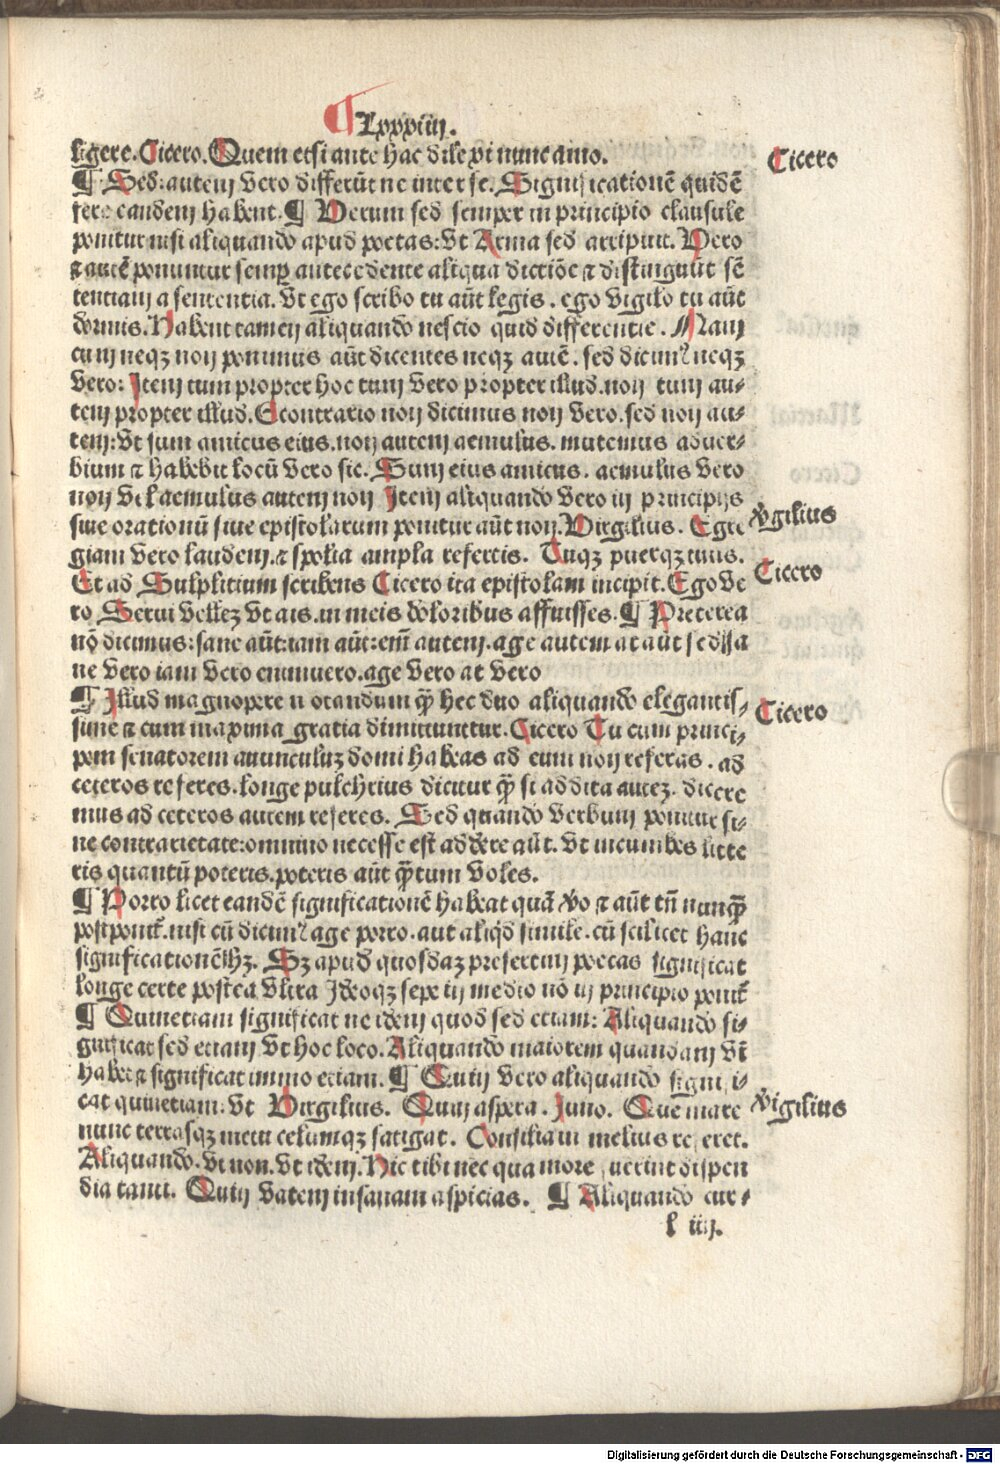 ¶ Lxxxiiij.
ligere. Cicero. Quem etsi ante hac dilexi nunc amo.
Cicero
¶ Sed: autem vero differūt ne inter se. Significationē quidē
fere eandem habent. ¶ Verum sed semper in principio clausule
ponitur nisi aliquando apud poetas: vt Arma sed arripuit. Vero
⁊ autē ponuntur semp antecedente aliqua dictiōe ⁊ distinguūt sē
tentiam a sententia. Vt ego scribo tu aūt legis. ego vigilo tu aūt
dormis. Habent tamen aliquando nescio quid differentie. Nam
cum neqꝫ non ponimus aūt dicentes neqꝫ autē. sed dicimꝰ neqꝫ
vero: Item tum propter hoc tum vero propter illud. non tum au-
tem propter illud. Econtrario non dicimus non vero. sed non au-
tem: vt sum amicus eius. non autem aemulus. mutemus aduer-
bium ⁊ habebit locū vero sic. Sum eius amicus. aemulus vero
non vel aemulus autem non Item aliquando vero in principijs
siue orationū siue epistolarum ponitur aūt non. Virgilius. Egre
v̄gilius
giam vero laudem. ⁊ spolia ampla refertis. Tuqꝫ puerqꝫ tuus.
Et ad Sulplitium scribens Cicero ita epistolam incipit. Ego ve
Cicero
ro. Serui vellez vt ais. in meis doloribus affuisses. ¶ Preterea
nō dicimus: sane aūt: iam aūt: em̄ autem. age autem at aūt sed sa
ne vero iam vero enimuero. age vero at vero
¶ Illud magnopere notandum q̄ hec duo aliquando elegantis-
Cicero
sime ⁊ cum maxima gratia dimittuntur. Cicero Tu cum princi-
pem senatorem auunculuꝫ domi habeas ad eum non referas. ad
ceteros referes. longe pulchrius dicitur q̄ si addita auteꝫ. dicere
mus ad ceteros autem referes. Sed quando verbum ponitur si-
ne contrarietate: omnino necesse est addere aūt. vt incumbes litte
ris quantū poteris. poteris aūt q̄tum voles.
¶ Porro licet eandē significationē habeat quā v̄o ⁊ aūt tn̄ nunq̄
postponit̄. nisi cū dicimꝰ age porro. aut aliqd simile. cū scilicet hanc
significationē hꝫ. Sꝫ apud quosdaꝫ presertim poetas significat
longe certe postea vltra Ideoqꝫ sepe in medio nō in principio ponit̄
¶ Quinetiam significat ne idem quod sed etiam: Aliquando si-
gnificat sed etiam vt hoc loco. Aliquando maiorem quandam vī
habet ⁊ significat immo etiam. ¶ Quin vero aliquando signi i-
cat quinetiam. vt Virgilius. Quin aspera. Juno. Que mare
v̄igilius
nunc terrasqꝫ metu celumqꝫ fatigat. Consilia in melius re eret.
Aliquando. vt non. vt idem. Hic tibi nec qua more uerint dispen
dia tanti. Quin vatem insanam aspicias. ¶ Aliquando cur-
l iiij.
Digitalisierung gefördert durch die Deutsche Forschungsgemeinschaft - DFG